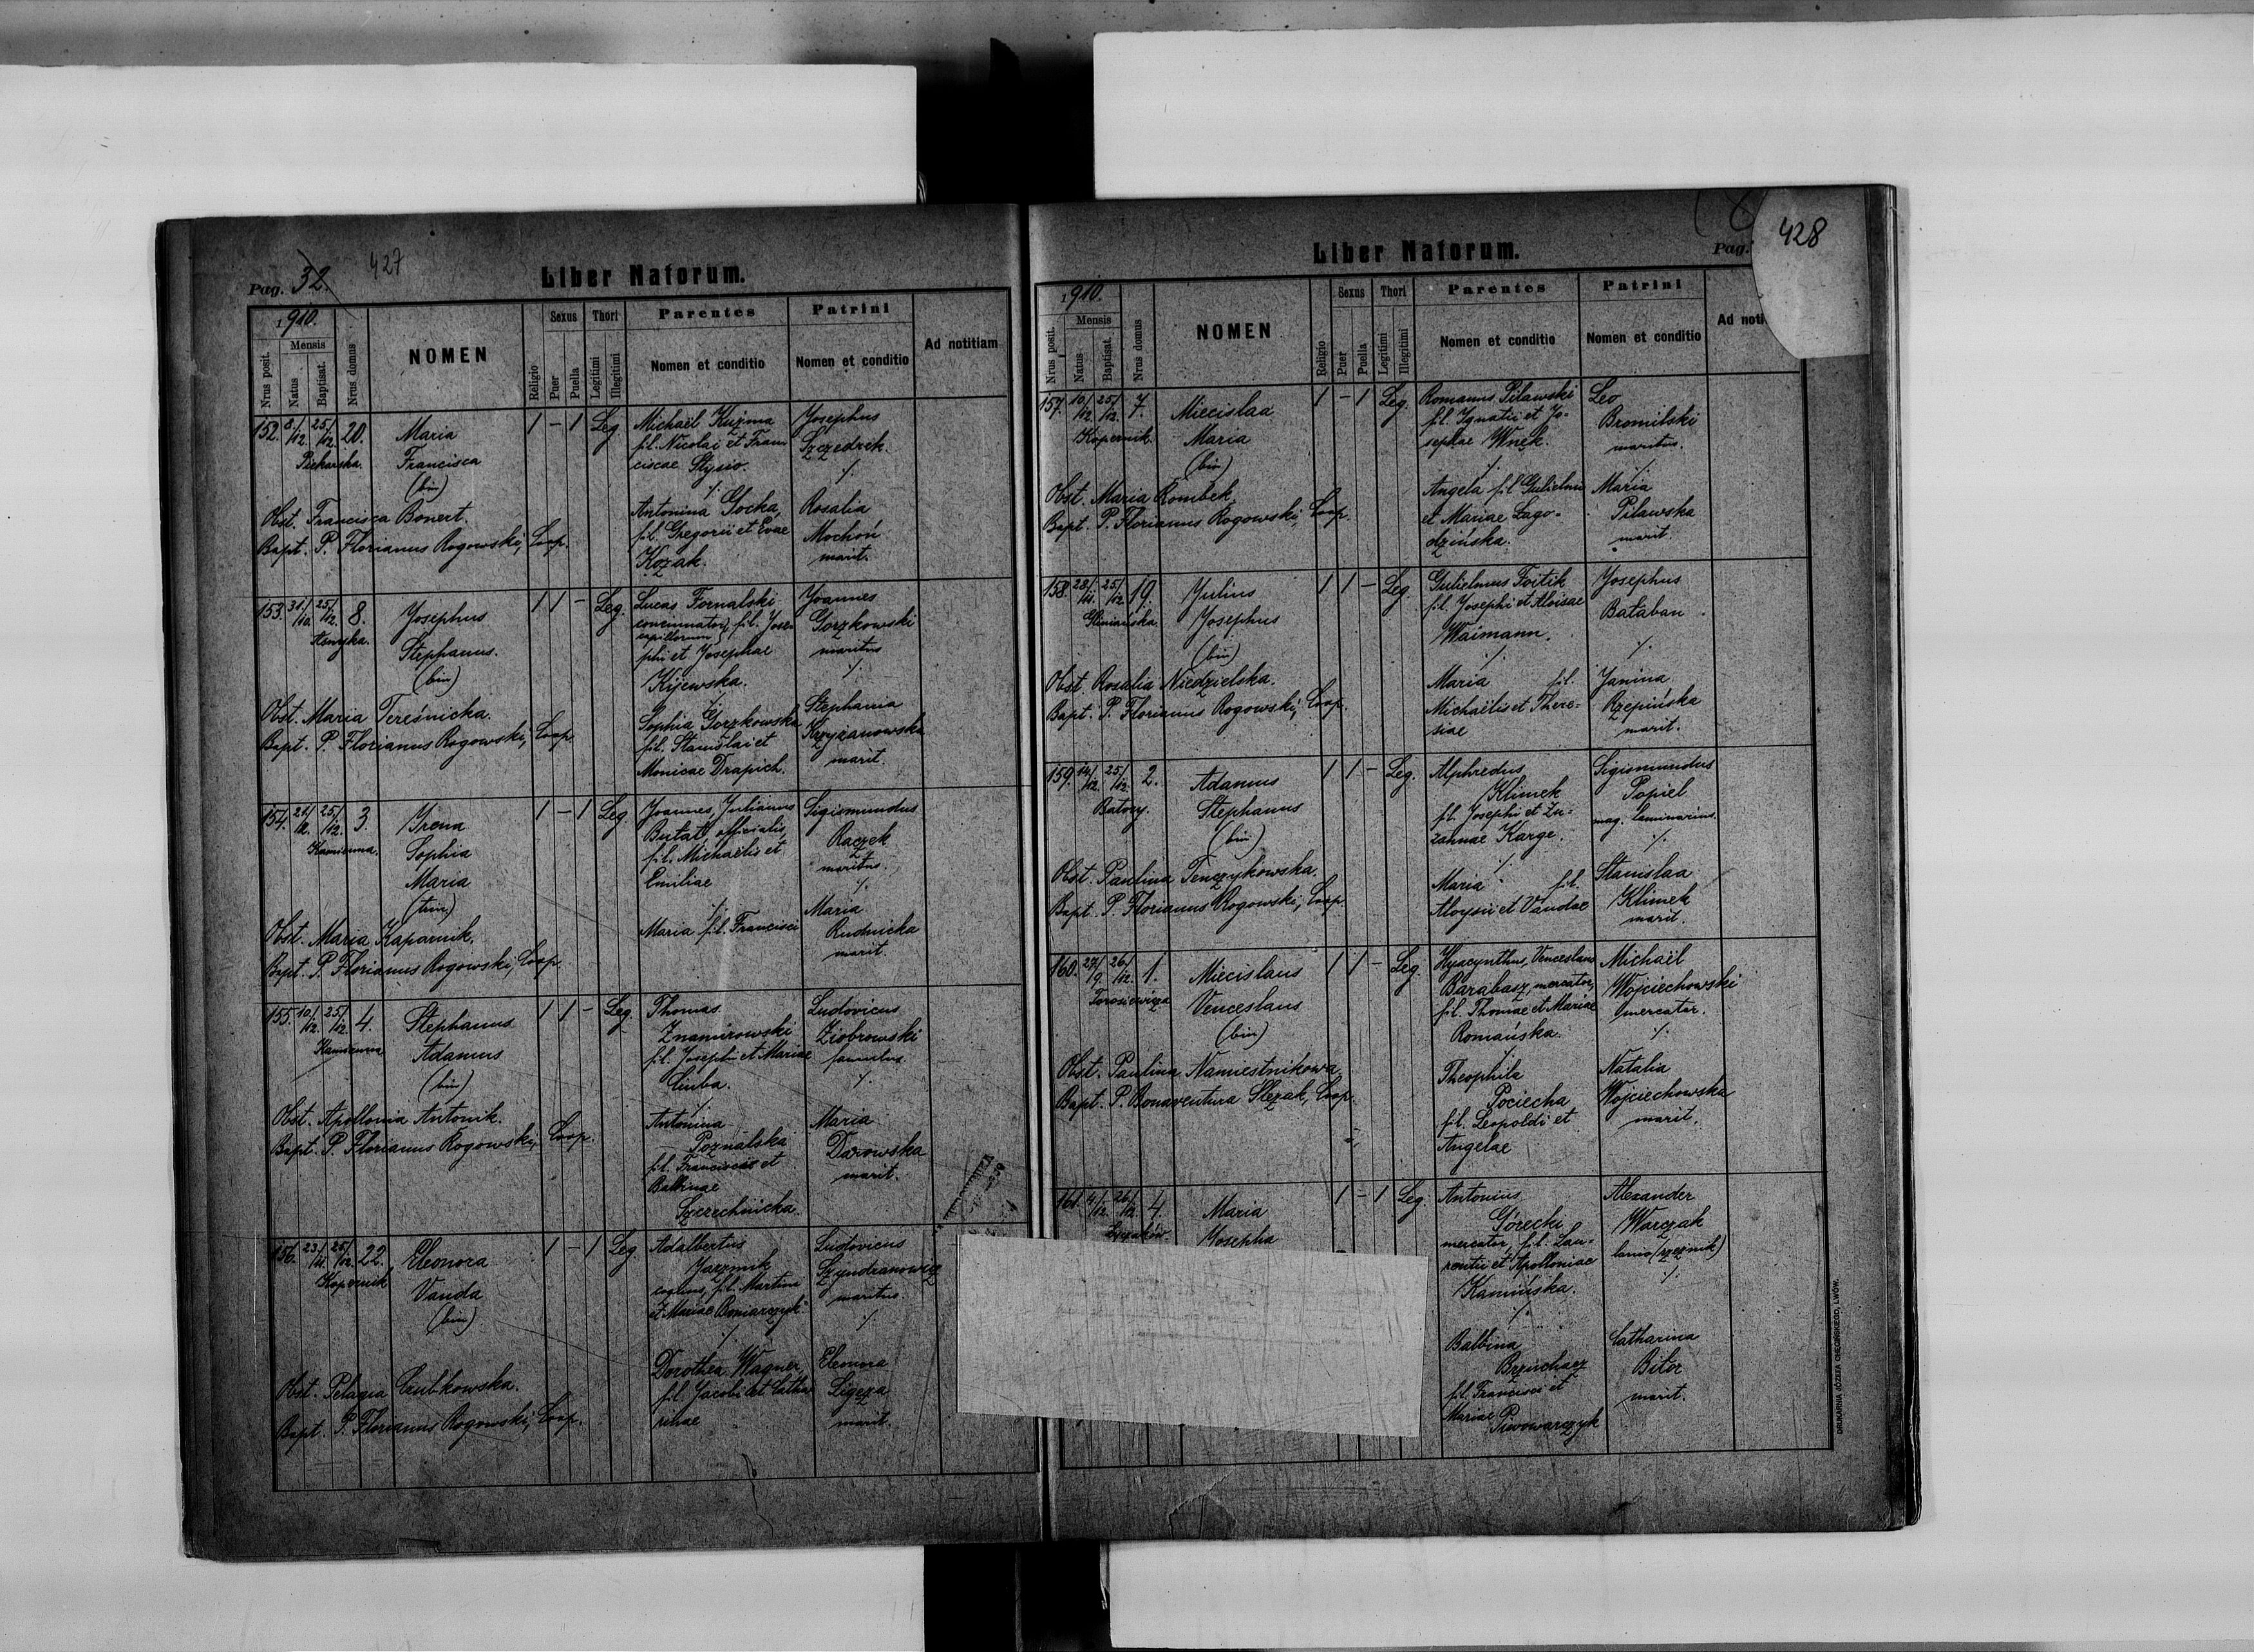 Pag. 32.
427
Liber Natorum.
1910.
Nrus posit.
Mensis
Natus
Baptisat.
Nrus domus
NOMEN
Religio
Sexus
Puer
Puella
Thori
Legitimi
Illegitimi
Parentes
Nomen et conditio
Patrini
Nomen et conditio
Ad notitiam
152. 8/12. 25/12. 20.
Piekarska.
Maria
Francisca
(bin)
1 - 1 Leg.
Michaël Kuźma
fil. Nicolai et Fran
ciscae Stysio.
Antonina Gocka,
fil. Gregorii et Evae
Kozak.
Josephus
Szczedrek.
Rosalia
Mochoń
marit.
Obst. Francisca Bonert.
Bapt. P. Florianus Rogowski, Coop.
153. 31/10. 25/12. 8.
Josephus
Stephanus.
(bin)
1 1 - Leg.
Lucas Fornalski
concinnator fil. Jose-
capillorum
phi et Josephae
Kijewska.
Sophia Gorzkowska
fil. Stanislai et
Monicae Drapich.
Joannes
Gorzkowski
maritus
Stephania
Krzyżanowska
marit.
Obst. Maria Tereśnicka.
Bapt. P. Florianus Rogowski, Coop.
154. 21/12. 25/12. 3.
Kamienna.
Irena
Sophia
Maria
(trin)
1 - 1 Leg.
Joannes, Julianus
officialis,
fil. Michaëlis et
Emiliae
Maria fil. Francisci
Sigismundus
Raczek
maritus.
Maria
Rudnicka
marit.
Obst. Maria Kaparnik.
Bapt. P. Florianus Rogowski, Coop.
155. 10/12. 25/12. 4.
Kamienna
Stephanus
Adamus
(bin)
1 1 - Leg.
Thomas
Znamirowski
fil. Josephi et Mariae
Antonina
Poznalska
fil. Francisci et
Balbinae
Szerechnicka.
Ludovicus
Ziobrowski
famulus.
Maria
Darowska
marit.
Obst. Apollonia Antonik.
Bapt. P. Florianus Rogowski, Coop.
156. 23/11. 25/12. 22.
Kopernik
Eleonora
Vanda
(bin)
1 - 1 Leg.
Adalbertus
Jarzmik
coquus, fil. Martini
et Mariae
Dorothea Wagner,
fil. Jacobi et Catha
rinae
Ludovicus
Szyndranowicz
maritus
Eleonora
Ligeza
marit.
Obst. Pelagia Czubkowska.
Bapt. P. Florianus Rogowski, Coop.
Liber Natorum.
Pag.
428
1910.
Nrus posit.
Mensis
Natus
Baptisat.
Nrus domus
NOMEN
Religio
Sexus
Puer
Puella
Thori
Legitimi
Illegitimi
Parentes
Nomen et conditio
Patrini
Nomen et conditio
Ad noti
157. 10/12 25/12. 7.
Kopernik.
Miecislaa
Maria
(bin)
1 - 1 Leg.
Romanus Pilawski
fil. Ignatii et Jo-
sephae Wnęk.
Angela fil. Gulielmi
et Mariae Łago-
dzińska.
Leo
Bromilski
maritus.
Maria
Pilawska
marit.
Obst. Maria Rombek.
Bapt. P. Florianus Rogowski, Coop.
158. 28/11. 25/12 19.
Gliniańska.
Julius
Josephus
(bin)
1 1 - Leg.
Gulielmus Foitik
fil. Josephi et Aloisae
Waimann.
Maria fil.
Michaëlis et There-
siae
Josephus
Bałaban
Janina
Rzepińska
marit.
Obst. Rosalia Niedzielska.
Bapt. P. Florianus Rogowski, Coop.
159. 14/12. 25/12. 2.
Batory.
Adamus
Stephanus
(bin)
1 1 - Leg.
Alphredus
Klimek
fil. Josephi et Zu-
zannae Karge.
Maria fil.
Aloysii et Vandae
Sigismundus
Popiel
mag. laminarius.
Stanislaa
Klimek
marit.
Obst. Paulina Tenczykowska.
Bapt. P. Florianus Rogowski, Coop.
160. 27/9. 26/12. 1.
Torosiewicza
Miecislaus
Venceslaus
(bin)
1 1 - Leg.
Hyacynthus, Venceslaus
Barabasz, mercator,
fil. Thomae et Mariae
Romańska.
Theophila
Pociecha
fil. Leopoldi et
Angelae
Michaël
Wojciechowski
mercator.
Natalia
Wojciechowska
marit.
Obst. Paulina Namiestnikowa
Bapt. P. Bonaventura Ślęzak, Coop.
161. 4/12. 26/12. 4.
Łyczaków.
Maria
Josepha
1 - 1 Leg.
Antonius
Górecki
mercator, fil. Lau-
rentii et Apolloniae
Kamińska.
Balbina
Brzuchacz
fil. Francisci et
Mariae
Piwowarczyk
Alexander
Warczak
lanio (rzeźnik)
Catharina
Bitor
marit.
DRUKARNIA JÓZEFA CHĘCIŃSKIEGO, LWÓW.